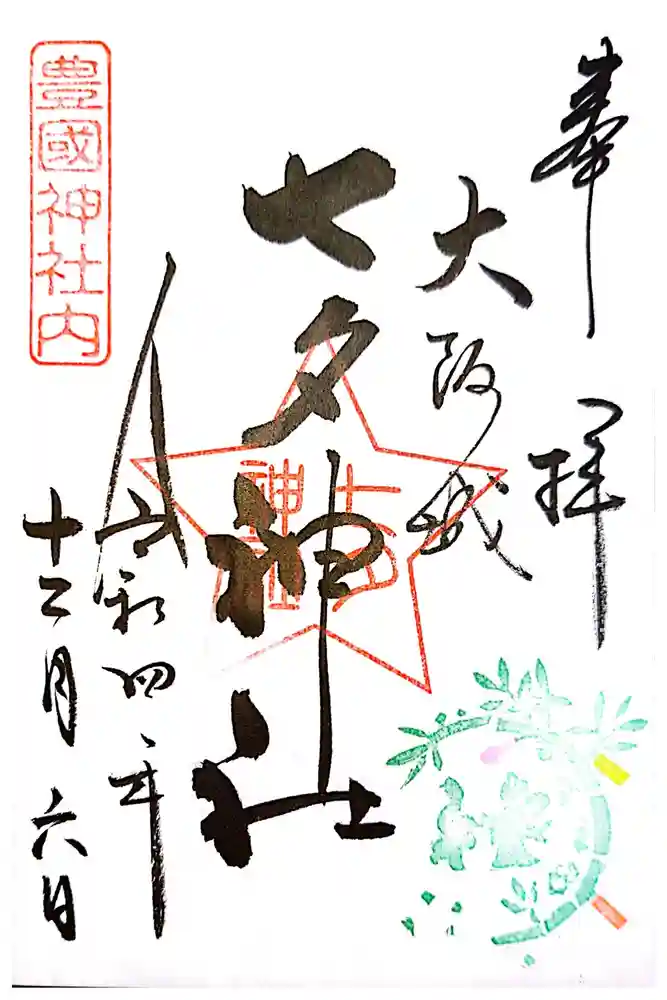 奉拝
大阪城
七夕神社
七夕神社
令和四年
十二月六日
豊國神社内